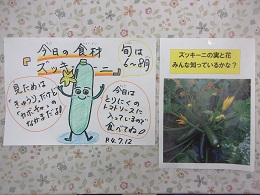 今日の食材
『ズッキーニ』
旬は
6〜8月
見ためは
「きゅうり」だけど
「かぼちゃ」の
なかまだよ!
今日は
とりにくの
トマトソースに
入っているので
食べてね
R4.7.12
ズッキーニの実と花
みんな知っているかな?